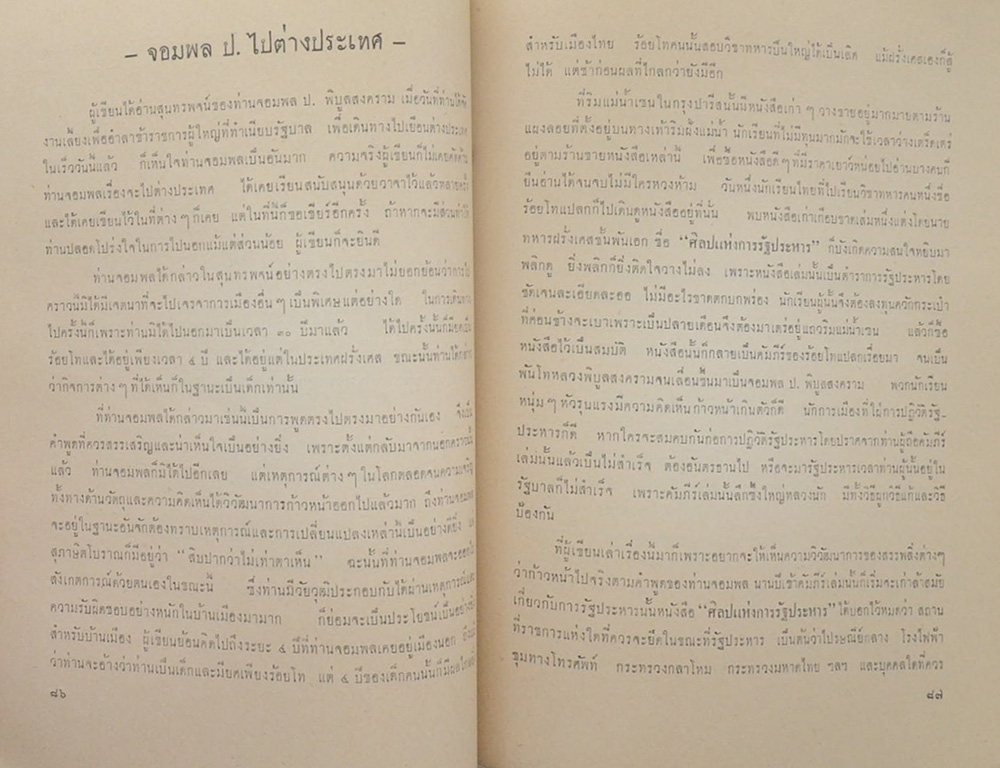 – จอมพล ป. ไปต่างประเทศ –
ผู้เขียนได้อ่านสุนทรพจน์ของท่านจอมพล ป. พิบูลสงคราม เมื่อวันที่ท่านได้จัด
งานเลี้ยงเพื่ออำลาข้าราชการผู้ใหญ่ที่ทำเนียบรัฐบาล เพื่อเดินทางไปเยือนต่างประเทศ
ในเร็ววันนี้แล้ว ก็เห็นใจท่านจอมพลเป็นอันมาก ความจริงผู้เขียนก็ไม่เคยคัดค้าน
ท่านจอมพลเรื่องจะไปต่างประเทศ ได้เคยเรียนสนับสนุนด้วยวาจาไว้แล้วหลายครั้ง
และได้เคยเขียนไว้ในที่ต่าง ๆ ก็เคย แต่ในที่นี้ก็ขอเชียร์อีกครั้ง ถ้าหากจะมีส่วนทำให้
ท่านปลอดโปร่งใจในการไปนอกแม้แต่ส่วนน้อย ผู้เขียนก็จะยินดี
ท่านจอมพลได้กล่าวในสุนทรพจน์อย่างตรงไปตรงมาไม่ยอกย้อนว่าการไป
คราวนี้มิได้มีเจตนาที่จะไปเจรจาการเมืองอื่น ๆ เป็นพิเศษแต่อย่างใด ในการเดินทาง
ไปครั้งนี้ก็เพราะท่านมิได้ไปนอกมาเป็นเวลา ๓๐ ปีมาแล้ว ได้ไปครั้งนั้นก็มียศเป็น
ร้อยโทและได้อยู่เพียงเวลา ๔ ปี และได้อยู่แต่ในประเทศฝรั่งเศส ขณะนั้นท่านได้กล่าว
ว่ากิจการต่าง ๆ ที่ได้เห็นก็ในฐานะเป็นเด็กเท่านั้น
ที่ท่านจอมพลได้กล่าวมาเช่นนี้เป็นการพูดตรงไปตรงมาอย่างกันเอง จึงเป็น
คำพูดที่ควรสรรเสริญและน่าเห็นใจเป็นอย่างยิ่ง เพราะตั้งแต่กลับมาจากนอกคราวนั้น
แล้ว ท่านจอมพลก็มิได้ไปอีกเลย แต่เหตุการณ์ต่าง ๆ ในโลกตลอดจนความเจริญ
ทั้งทางด้านวัตถุและความคิดเห็นได้วิวัฒนาการก้าวหน้าออกไปแล้วมาก ถึงท่านจอมพล
จะอยู่ในฐานะอันจักต้องทราบเหตุการณ์และการเปลี่ยนแปลงเหล่านี้เป็นอย่างดียิ่ง แต่
สุภาษิตโบราณก็มีอยู่ว่า “สิบปากว่าไม่เท่าตาเห็น” ฉะนั้นที่ท่านจอมพลจะออกไป
สังเกตการณ์ด้วยตนเองในขณะนี้ ซึ่งท่านมีวัยวุฒิประกอบกับได้ผ่านเหตุการณ์และ
ความรับผิดชอบอย่างหนักในบ้านเมืองมามาก ก็ย่อมจะเป็นประโยชน์เป็นอย่างยิ่ง
สำหรับบ้านเมือง ผู้เขียนย้อนคิดไปถึงระยะ ๔ ปีที่ท่านจอมพลเคยอยู่เมืองนอก ถึงแม้
ว่าท่านจะอ้างว่าท่านเป็นเด็กและมียศเพียงร้อยโท แต่ ๔ ปีของเด็กคนนั้นก็มีผล
๘๖
สำหรับเมืองไทย ร้อยโทคนนั้นสอบวิชาทหารปืนใหญ่ได้เป็นเลิศ แม้ฝรั่งเศสเองก็สู้
ไม่ได้ แต่ช้าก่อนผลที่ไกลกว่ายังมีอีก
ที่ริมแม่น้ำเซนในกรุงปารีสนั้นมีหนังสือเก่า ๆ วางขายอยู่มากมายตามร้าน
แผงลอยที่ตั้งอยู่บนทางเท้าริมฝั่งแม่น้ำ นักเรียนที่ไม่มีทุนมากมักจะใช้เวลาว่างเตร็ดเตร่
อยู่ตามร้านขายหนังสือเหล่านี้ เพื่อซื้อหนังสือดี ๆ ที่มีราคาเยาว์หน่อยไปอ่านบางคนก็
ยืนอ่านได้จนจบไม่มีใครหวงห้าม วันหนึ่งนักเรียนไทยที่ไปเรียนวิชาทหารคนหนึ่งชื่อ
ร้อยโทแปลกก็ไปเดินดูหนังสืออยู่ที่นั้น พบหนังสือเก่าเกือบขาดเล่มหนึ่งแต่งโดยนาย
ทหารฝรั่งเศสชั้นพันเอก ชื่อ “ศิลปแห่งการรัฐประหาร” ก็บังเกิดความสนใจหยิบมา
พลิกดู ยิ่งพลิกก็ยิ่งติดใจวางไม่ลง เพราะหนังสือเล่มนั้นเป็นตำราการรัฐประหารโดย
ชัดเจนละเอียดละออ ไม่มีอะไรขาดตกบกพร่อง นักเรียนผู้นั้นจึงต้องลงทุนควักกระเป๋า
ที่ค่อนข้างจะเบาเพราะเป็นปลายเดือนจึงต้องมาเตร่อยู่แถวริมแม่น้ำเซน แล้วก็ซื้อ
หนังสือไว้เป็นสมบัติ หนังสือนั้นก็กลายเป็นคัมภีร์ของร้อยโทแปลกเรื่อยมา จนเป็น
พันโทหลวงพิบูลสงครามจนเลื่อนชั้นมาเป็นจอมพล ป. พิบูลสงคราม พวกนักเรียน
หนุ่ม ๆ หัวรุนแรงมีความคิดเห็นก้าวหน้าเกินตัวก็ดี นักการเมืองที่ใฝ่การปฏิวัติรัฐ-
ประหารก็ดี หากใครจะสมคบกันก่อการปฏิวัติรัฐประหารโดยปราศจากท่านผู้ถือคัมภีร์
เล่มนั้นแล้วเป็นไม่สำเร็จ ต้องอันตรธานไป หรือจะมารัฐประหารเวลาท่านผู้นั้นอยู่ใน
รัฐบาลก็ไม่สำเร็จ เพราะคัมภีร์เล่มนั้นลึกซึ้งใหญ่หลวงนัก มีทั้งวิธีผูกวิธีแก้และวิธี
ป้องกัน
ที่ผู้เขียนเล่าเรื่องนี้มาก็เพราะอยากจะให้เห็นความวิวัฒนาการของสรรพสิ่งต่างๆ
ว่าก้าวหน้าไปจริงตามคำพูดของท่านจอมพล นานปีเข้าคัมภีร์เล่มนั้นก็เริ่มจะเก่าล้าสมัย
เกี่ยวกับการรัฐประหารนั้นหนังสือ “ศิลปแห่งการรัฐประหาร” ได้บอกไว้หมดว่า สถาน
ที่ราชการแห่งใดที่ควรจะยึดในขณะที่รัฐประหาร เป็นต้นว่าไปรษณีย์กลาง โรงไฟฟ้า
ชุมทางโทรศัพท์ กระทรวงกลาโหม กระทรวงมหาดไทย ฯลฯ และบุคคลใดที่ควร
๘๗